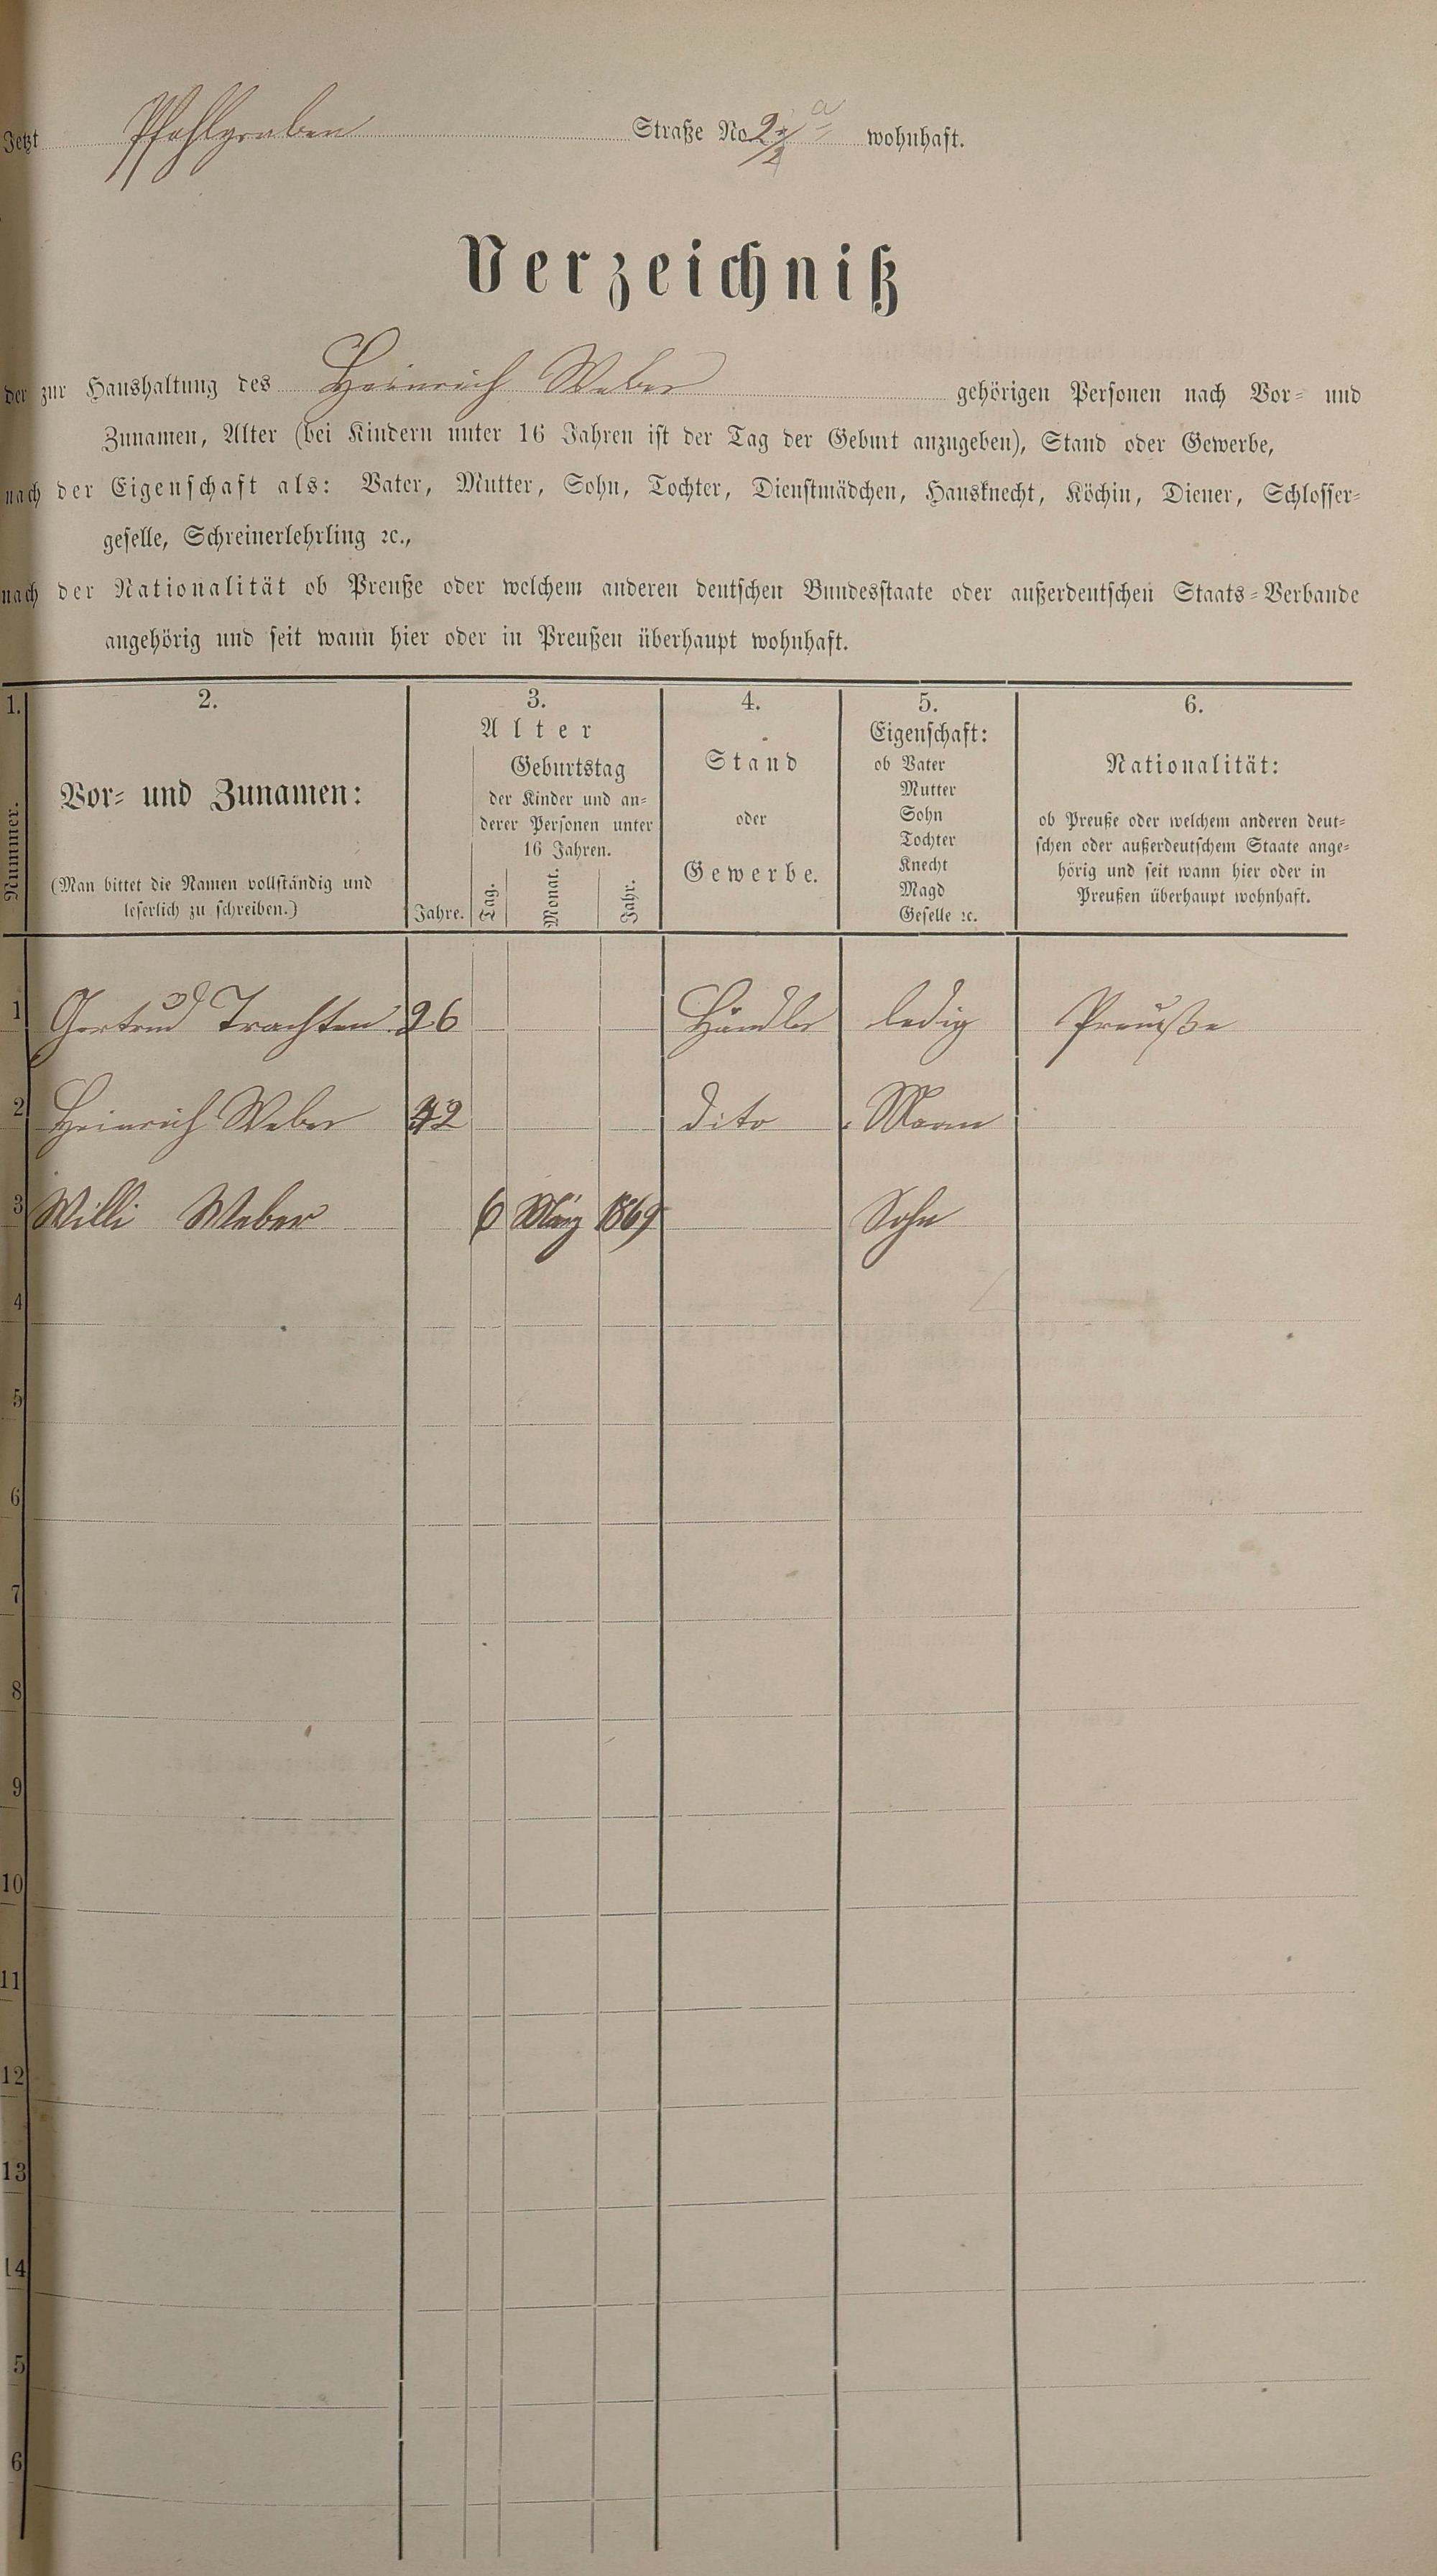 Jetzt Pfahlgraben Straße No 2 a wohnhaft.
Verzeichniß
der zur Haushaltung des Heinrich Weber gehörigen Personen nach Vor- und
Zunamen, Alter (bei Kindern unter 16 Jahren ist der Tag der Geburt anzugeben), Stand oder Gewerbe,
nach der Eigenschaft als: Vater, Mutter, Sohn, Tochter, Dienstmädchen, Hausknecht, Köchin, Diener, Schlosser-
geselle, Schreinerlehrling ꝛc.,
nach der Nationalität ob Preuße oder welchem anderen deutschen Bundesstaate oder außerdeutschen Staats-Verbande
angehörig und seit wann hier oder in Preußen überhaupt wohnhaft.
1. 2. 3. 4. 5. 6.
Nummer.
Vor- und Zunamen:
(Man bittet die Namen vollständig und
leserlich zu schreiben.)
Alter
Geburtstag
der Kinder und an-
derer Personen unter
16 Jahren.
Jahre. Tag. Monat. Jahr.
Stand
oder
Gewerbe.
Eigenschaft:
ob Vater
Mutter
Sohn
Tochter
Knecht
Magd
Geselle ꝛc.
Nationalität:
ob Preuße oder welchem anderen deut-
schen oder außerdeutschem Staate ange-
hörig und seit wann hier oder in
Preußen überhaupt wohnhaft.
1 Gertrud Trachten 26 Händler ledig Preuße
2 Heinrich Weber 42 dito Mann
3 Willi Weber 6 März 1869 Sohn
4
5
6
7
8
9
10
11
12
13
14
5
6